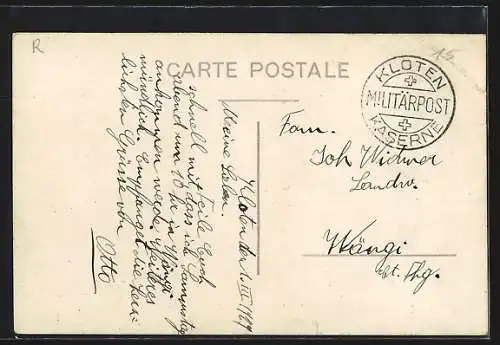 R
15
CARTE POSTALE
KLOTEN
MILITÄRPOST
KASERNE
Kloten den 1. III 1929
Meine Lieben.
Teile Euch
schnell mit, dass ich Samstag
abend um 10 hr in Wängi
ankommen werde. Weiteres
mündlich. Empfanget die
lieben Grüsse von
Otto
Fam.
Joh Widmer
Landw.
Wängi
Kt. Thg.